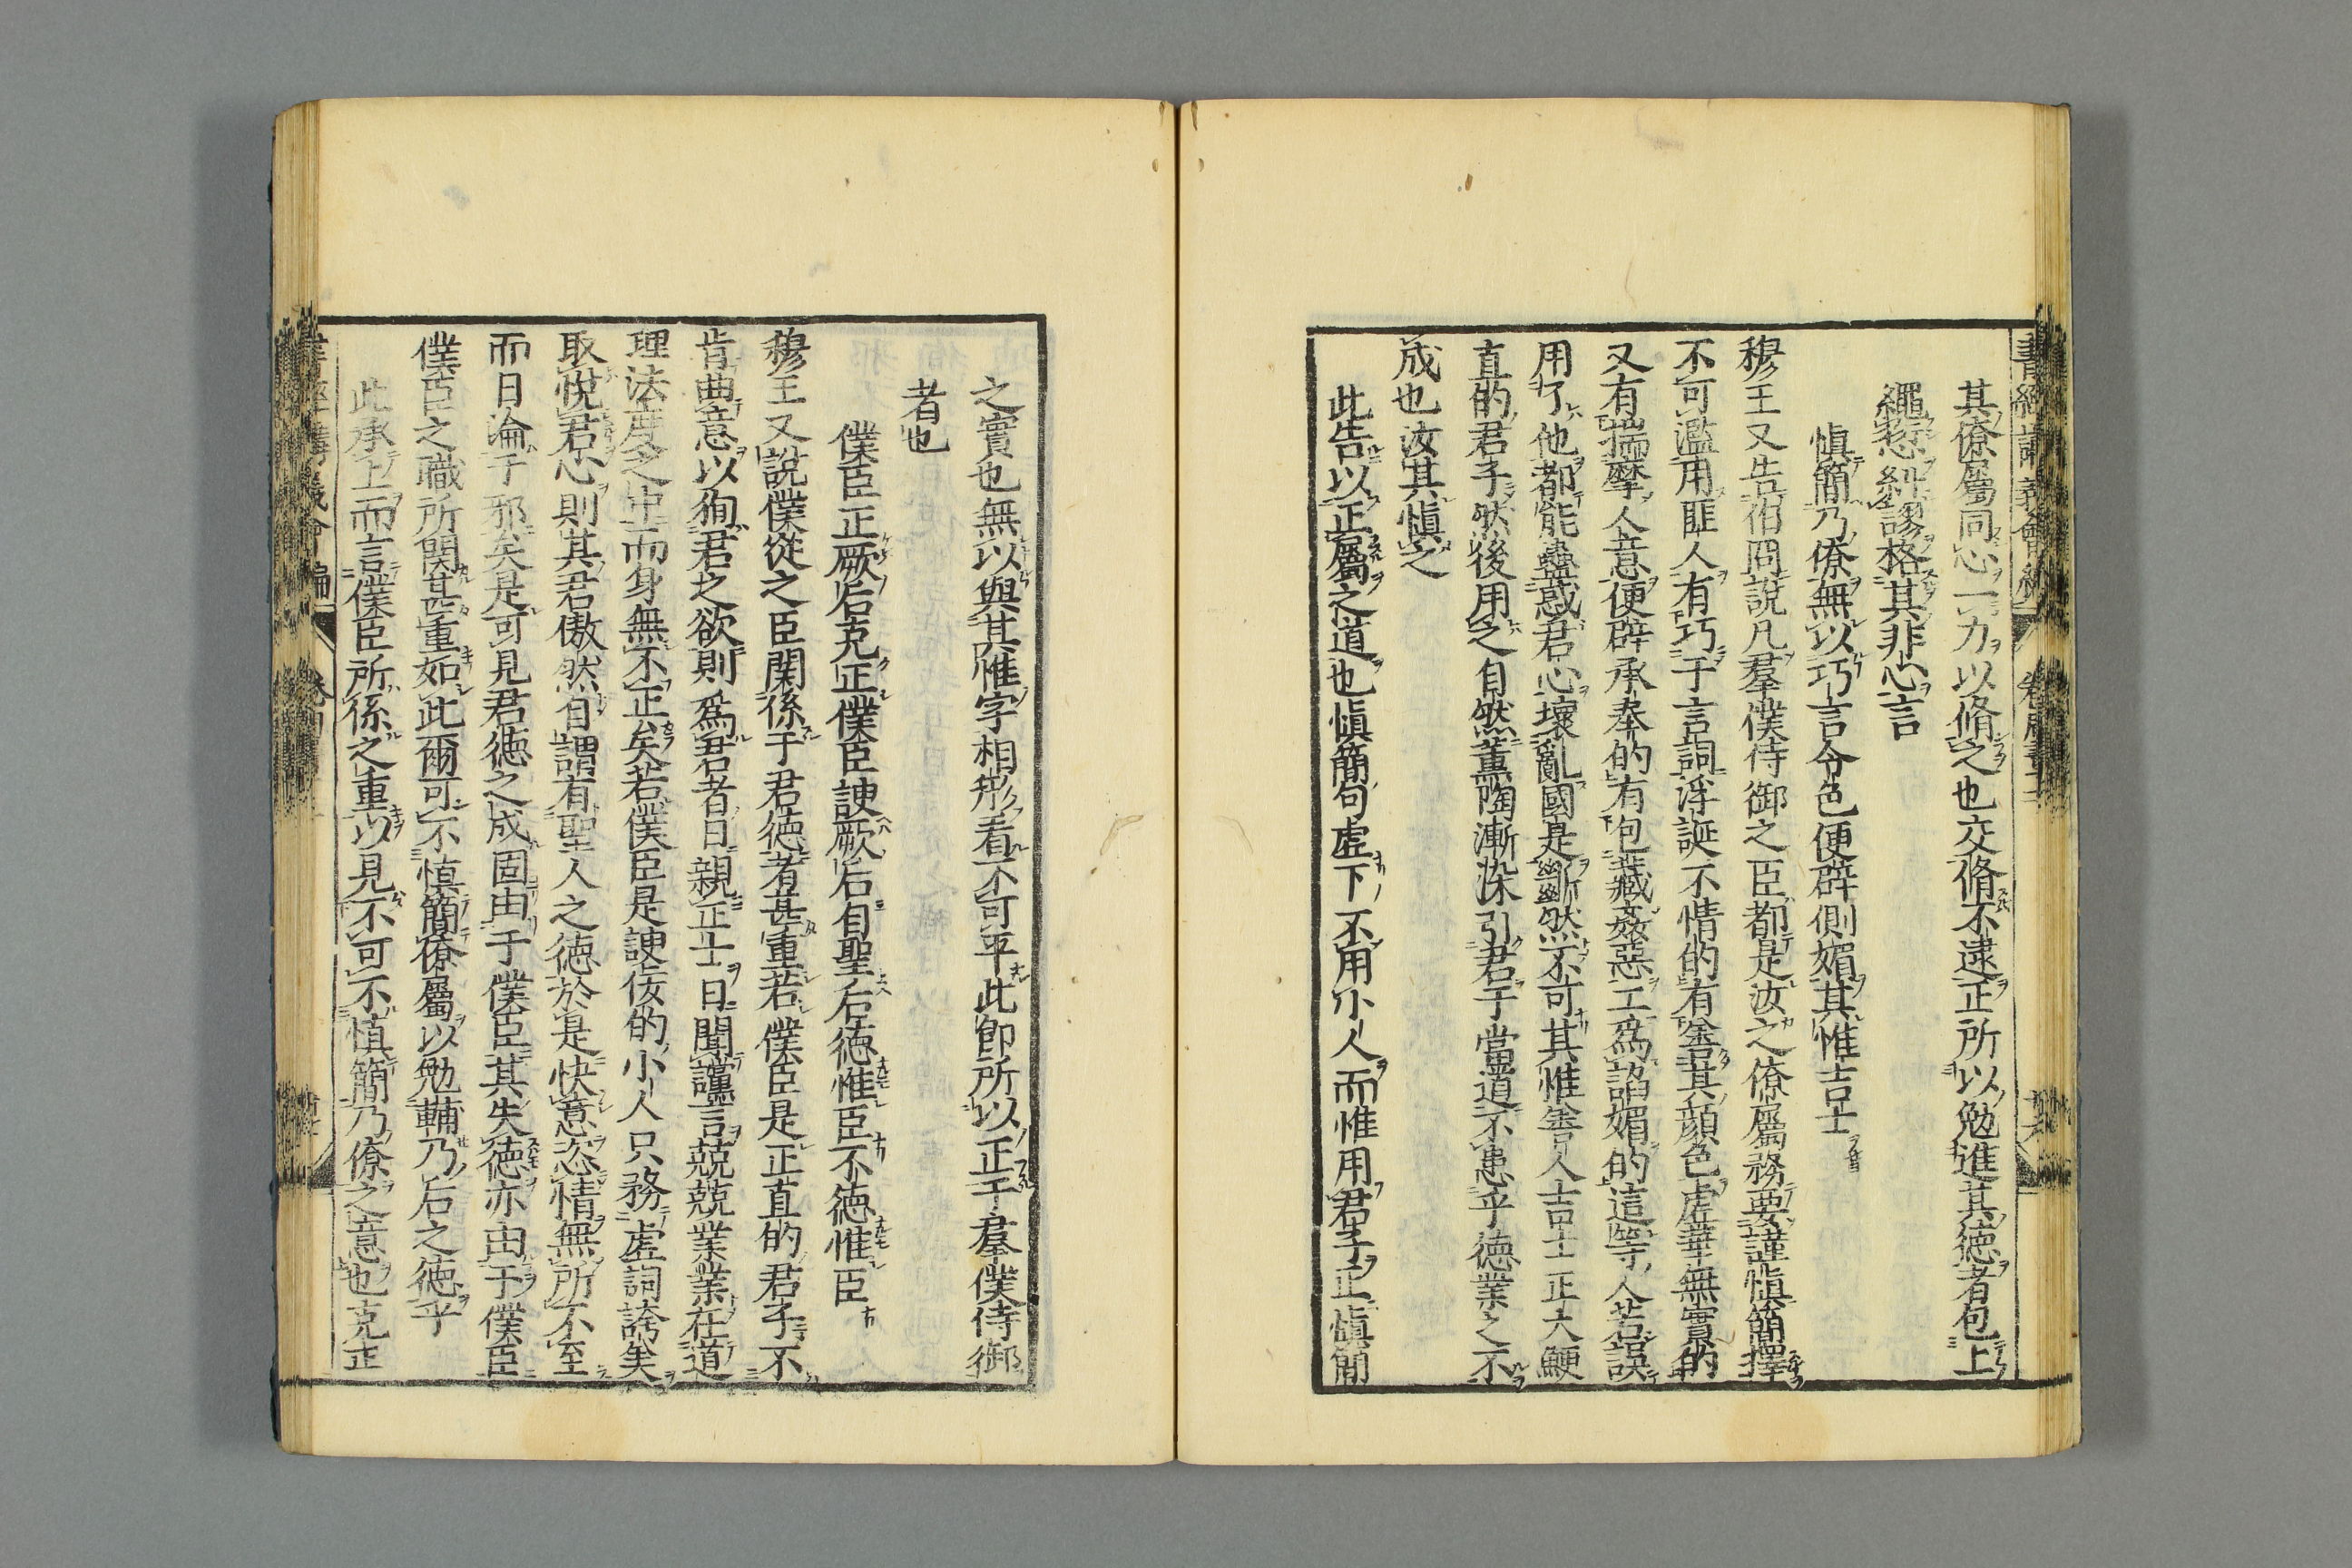 其僚屬同心一力以脩之也交脩不逮正所以勉進其德者包上
繩愆糾謬格其非心言
愼簡乃僚無以巧言令色便辟側媚其惟吉士
穆王又告伯冏說凡羣僕侍御之臣都是汝之僚屬務要謹愼簡擇
不可濫用匪人有巧于言詞浮誕不情的有善其顔色虚華無實的
又有揣摩人意便辟承奉的有包藏姦惡工爲諂媚的這等人若誤
用了他都能蠱惑君心壞亂國是斷然不可其惟善人吉士正大鯁
直的君子然後用之自然薫陶漸染引君于當道不患乎德業之不
成也汝其愼之
此告以正屬之道也愼簡句虚下不用小人而惟用君子正愼簡
之實也無以與其惟字相形看不可平此卽所以正于羣僕侍御
者也
僕臣正厥后克正僕臣諛厥后自聖后德惟臣不德惟臣
穆王又說僕從之臣関係于君德者甚重若僕臣是正直的君子不
肯曲意以狥君之欲則爲君者日親正士日聞讜言兢兢業業在道
理法度之中而身無不正矣若僕臣是諛佞的小人只務虚詞誇美
取悅君心則其君傲然自謂有聖人之德於是快意恣情無所不至
而日淪于邪矣是可見君德之成固由于僕臣其失德亦由于僕臣
僕臣之職所関甚重如此爾可不慎簡僚屬以勉輔乃后之德乎
此承上而言僕臣所係之重以見不可不慎簡乃僚之意也克正